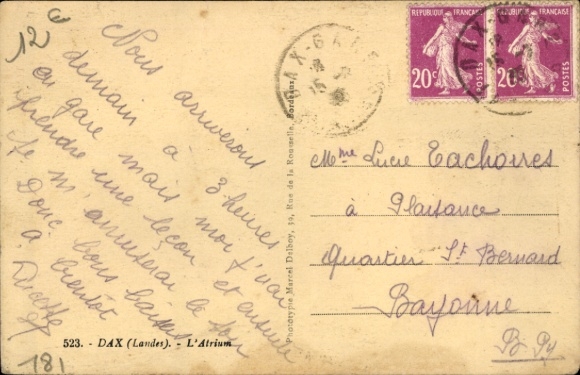 12 c
Nous arriverons
demain à 3 heures
en gare mais moi j'irai
prendre une leçon et ensuite
je m'amuserai le soir
Donc bons baisers
à bientôt
181
523. - DAX (Landes). - L'Atrium
Phototypie Marcel Delboy, 39, Rue de la Rousselle, Bordeaux
DAX-GARE
REPUBLIQUE FRANÇAISE
20c POSTES
REPUBLIQUE FRANÇAISE
20c POSTES
DAX-GARE
Mme Lucie Tachoires
à Plaisance
Quartier St Bernard
Bayonne
B. Py